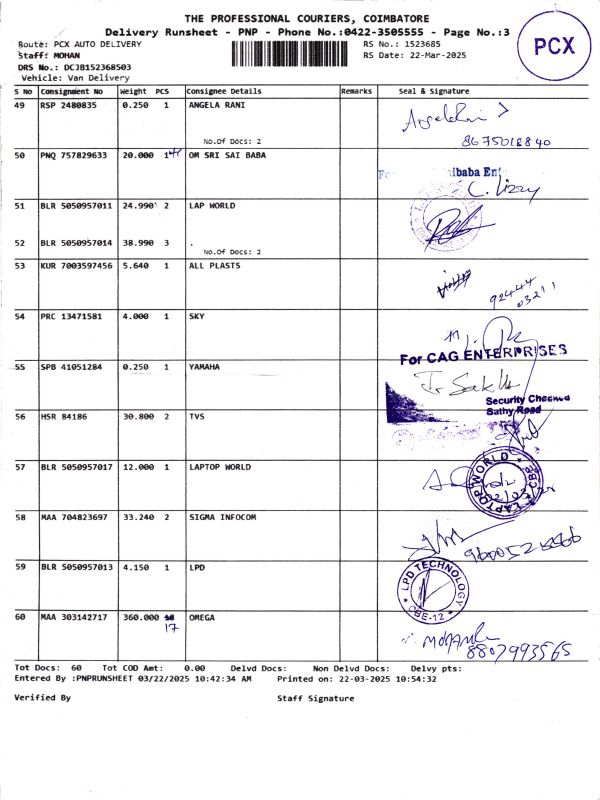 THE PROFESSIONAL COURIERS, COIMBATORE
Delivery Runsheet - PNP - Phone No.:0422-3505555 - Page No.:3
Route: PCX AUTO DELIVERY RS No.: 1523685
Staff: MOHAN RS Date: 22-Mar-2025
DRS No.: DCJB152368503
Vehicle: Van Delivery
PCX
S No Consignment No Weight PCS Consignee Details Remarks Seal & Signature
49 RSP 2480835 0.250 1 ANGELA RANI
No.Of Docs: 2
8675018840
50 PNQ 757829633 20.000 1 OM SRI SAI BABA
C. Lizzy
51 BLR 5050957011 24.990 2 LAP WORLD
52 BLR 5050957014 38.990 3 .
No.Of Docs: 2
53 KUR 7003597456 5.640 1 ALL PLASTS
92444
03211
54 PRC 13471581 4.000 1 SKY
For CAG ENTERPRISES
55 SPB 41051284 0.250 1 YAMAHA
Security Checked
Sathy Road
56 HSR 84186 30.800 2 TVS
57 BLR 5050957017 12.000 1 LAPTOP WORLD
LAPTOP WORLD CBE
58 MAA 704823697 33.240 2 SIGMA INFOCOM
59 BLR 5050957013 4.150 1 LPD
LPD TECHNOLOGY
CBE-12
60 MAA 303142717 360.000 OMEGA
17
8807993565
Tot Docs: 60 Tot COD Amt: 0.00 Delvd Docs: Non Delvd Docs: Delvy pts:
Entered By :PNPRUNSHEET 03/22/2025 10:42:34 AM Printed on: 22-03-2025 10:54:32
Verified By Staff Signature